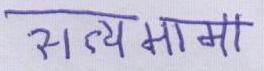 सत्यभामा